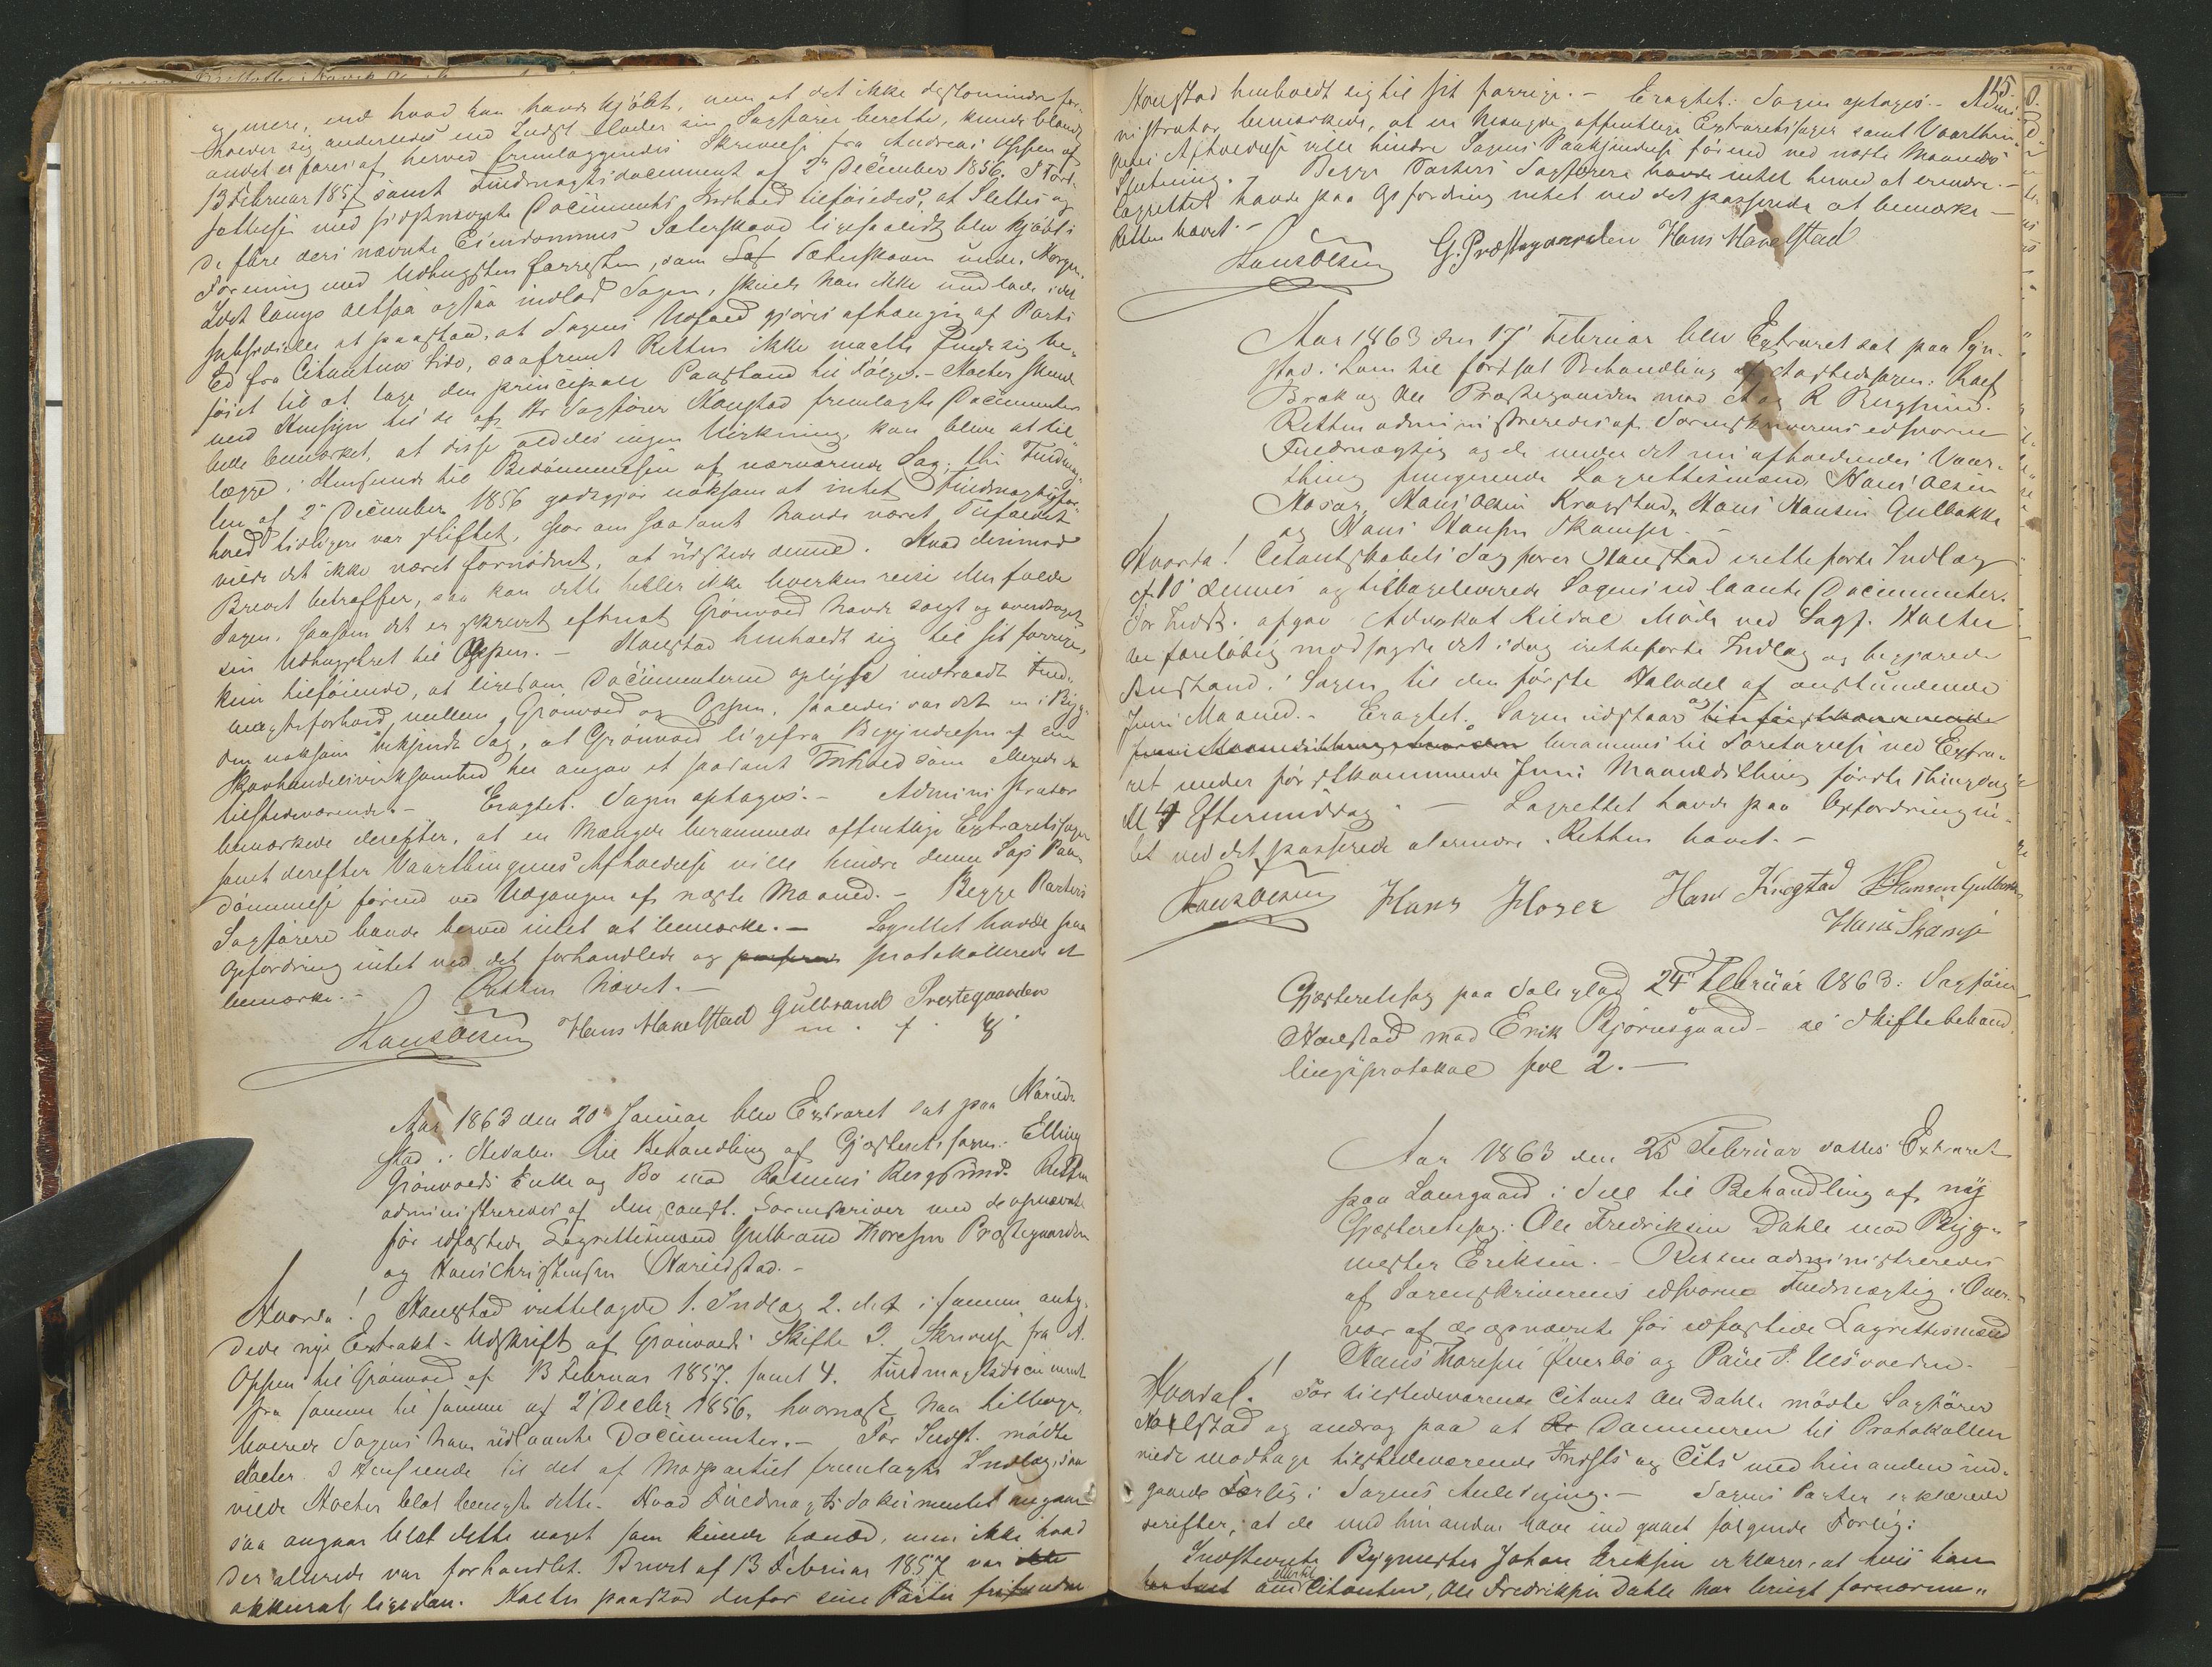 og mere, end hvad han havde kjøbt, men at det ikke destomindre for-
holder sig anderledes end Indst. lader sin Sagfører berette, kunde blandt
andet erfares af herved fremlæggendes Skrivelse fra Andreas Opsen af
13 Februar 1857 samt Fuldmagtsdocument af 2den December 1856. I Fort-
sættelse med sidstnævnte Document's Indhold tilføiedes, at Slettes og
de flere deri nævnte Eiendommes Sæterskove ligesaalidt blev kjøbt i
Forening med Udhugsten forresten, som
Idet Langs altsaa ogsaa indlod Sagen, skulde han ikke undlade i det
subsidiært at paastaa, at Sagens Udfald gjøres afhængig af Parts
Ed fra Citantens Side, saafremt Retten ikke maatte finde sig be-
føiet til at tage den principale Paastand til Følge. - Holter skulde
med Hensyn til de af Hr Sagfører Hougstad fremlagte Documenter
bemærket, at disse aldeles ingen Virkning kan blive at til-
lægge i Henseende til Bedømmelsen af nærværende Sag, thi Fuldmag-
ten af 2den December 1856 godtgjør noksom at intet Fuldmagtsfor-
hold tidligere var stiftet, thi om saadant havde været Tilfældet
vilde det ikke været fornødent, at udstede denne. Hvad derimod
Brevet betræffer, saa kan dette heller ikke hverken reise eller fælde
Sagen, saasom det er skrevet efterat Grønvold havde solgt og overdraget
sin Udhugstret til Opsen. - Hougstad henholdt sig til sit forrige,
kun tilføiende, at ligesom Documenterne oplyse indtraadt Fuld-
magtsforhold mellem Grønvold og Opsen, saaledes var det en i Byg-
den noksom bekjendt Sag, at Grønvold ligefra Begyndelsen af sin
Skovhandelsvirksomhed her angav et saadant Forhold som allerede da
tilstedeværende. - Eragtet. Sagen optages. - Administrator
bemærkede derefter, at en Mængde berammede offentlige Extraretssager
samt derefter Vaarthingenes Afholdelse ville hindre denne Sags Paa-
dømmelse førend ved Udgangen af næste Maaned. - Begge Parters
Sagførere havde herved intet at bemærke. - Lagrettet havde paa
Opfordring intet ved det forhandlede og passerede protokollerede at
bemærke. - Retten hævet. -
Hans Olsen Hans Havelstad Gulbrand Prestegaarden
m. f. P.
Aar 1863 den 20 Januar blev Extraret sat paa Narud-
stad i Hedalen til Behandling af Gjæsteretssagen: Elling
Grønvolds Enke og Bo mod Rasmus Bergsund. Retten
administreredes af den const. Sorenskriver med de opnævnte
før edfæstede Lagrettesmænd Gulbrand Thoresen Præstegaarden
og Hans Christensen Narudstad. -
Hvorda! Hougstad irettelagde 1. Indlæg 2. det i samme anty-
dede nye Extrakt-Udskrift af Grønvolds Skifte 3. Skrivelse fra A.
Opsen til Grønvold af 13 Februar 1857. samt 4. Fuldmagtsdocument
fra samme til samme af 2 Decbr 1856, hvornæst han tilbage-
leverede Sagens ham udlaante Documenter. - For Indst. mødte
Holter. I Henseende til det af Modpartiet fremlagte Indlæg, saa
vilde Holter blot benegte dette. Hvad Fuldmagtsdokumentet angaar
saa angaar blot dette noget som kunde hænd, men ikke hvad
der allerede var forhandlet. Brevet af 13 Februar 1857 var ikke
akkurat ligedan. Holter paastod derfor sine Parter frifundne
115.
Hougstad henholdt sig til sit forrige. - Eragtet: Sagen optages. - Admi-
nistrator bemærkede, at en Mængde offentlige Extraretssager samt Vaarthin-
genes Afholdelse ville hindre Sagens Paakjendelse førend ved næste Maaneds
Slutning. - Begge Parters Sagførere havde intet herved at erindre. -
Lagrettet havde paa Opfordring intet ved det passerede at bemærke -
Retten hævet. -
Hans Olsen G. Præstegaarden Hans Havelstad
Aar 1863 den 17 Februar blev Extraret sat paa Syn-
stad i Lom til fortsat Behandling af Aastedssagen: Rolf
Brak og Ole Præstegaarden mod A og R Bergsund.
Retten administreredes af Sorenskriverens edsvorne
Fuldmægtig og de under det nu afholdendes Vaar-
thing fungerende Lagrettesmænd Hans Olsen
Mosar, Hans Olsen Kragstad, Hans Hansen Gulbakke
og Hans Hansen Skamsar -
Hvorda! Citantskabets Sagfører Hougstad iretteførte Indlæg
af 10 dennes og tilbageleverede Sagens udlaante Documenter.
For Indst. afgav Advokat Kildal Møde ved Sagf. Holter
der foreløbig modsagde det idag irettefførte Indlæg og begjærede
Anstand i Sagen til den første Halvdel af anstundende
Juni Maaned. - Eragtet. Sagen udstaar og
berammes til Foretagelse ved Extra-
ret under førstkommende Juni Maanedsthing første Thingdag
Kl 4 Eftermiddag. - Lagrettet havde paa Opfordring in-
tet ved det passerede at erindre. Retten hævet. -
Hans Olsen Hans Moser Hans Kragstad H Hansen Gulbakke
Hans Skamsar
Gjæsteretssag paa Dale glad 24de Februar 1863: Sagfører
Hoelstad mod Erik Bjørnsgaard - se Skiftebehand-
lingsprotokol fol 2. -
Aar 1863 den 25 Februar sattes Extraret
paa Laurgaard i Sell til Behandling af ny
Gjæsteretssag: Ole Fredriksen Dahle mod Byg-
mester Eriksen. - Retten administreredes
af Sorenskriverens edsvorne Fuldmægtig i Over-
vær af de opnævnte før edfæstede Lagrettesmænd
Hans Thoresen Øverbø og Paul P. Ulsvolden -
Hvordaf! For tilstedeværende Citant Ole Dahle mødte Sagfører
Hoelstad og androg paa at Dommeren til Protokollen
vilde modtage tilstedeværende Indsts og Cits med hinanden ind-
gaaede Forlig i Sagens Anledning. - Sagens Parter erklærede
derefter, at de med hinanden have indgaaet følgende Forlig:
Indstevnte Bygmester Johan Eriksen erklærer, at hvis han
om eller til Citanten, Ole Fredriksen Dahle har brugt fornærme-